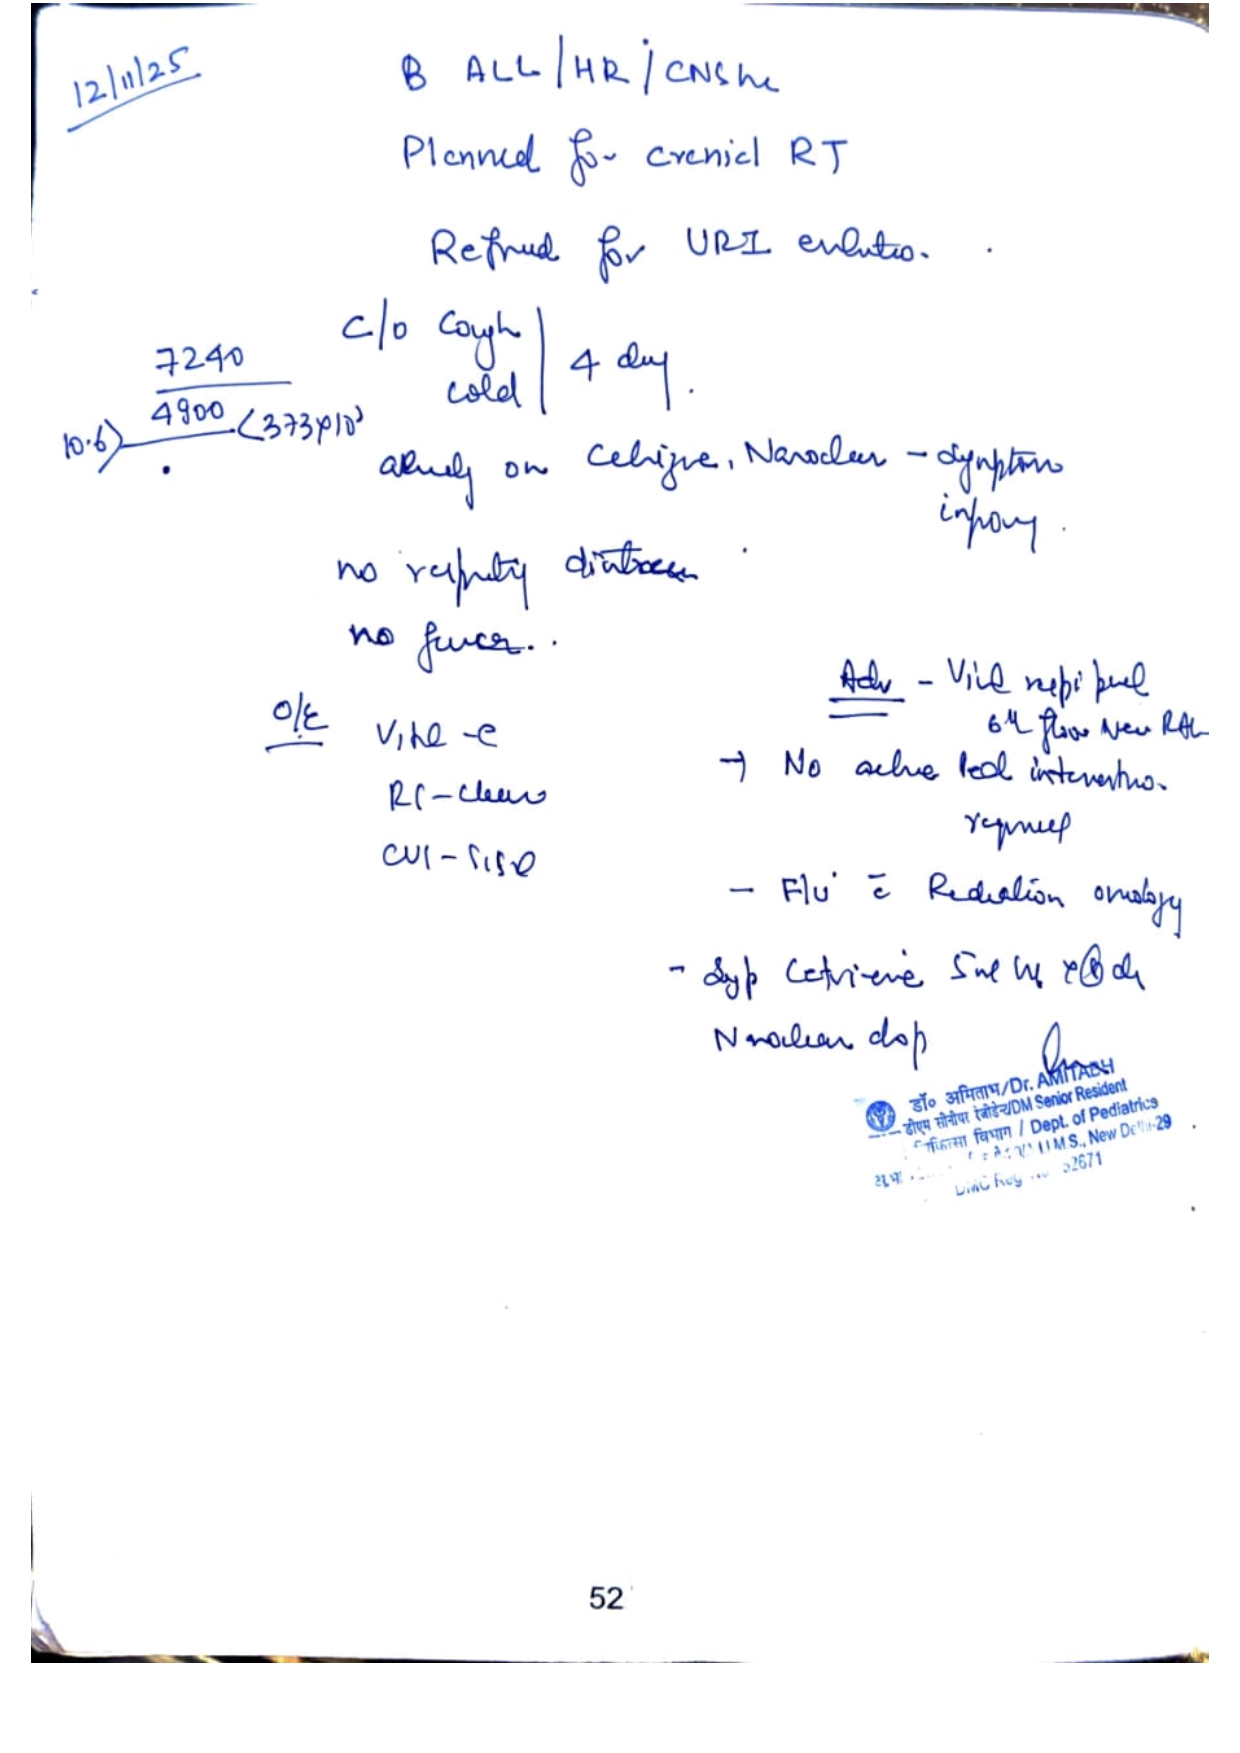 12/11/25
B ALL/HR/CNS
Planned for cranial RT
Referred for URI evaluation.
C/o Cough
cold
4 day.
7240
4900
10.6
373x10³
already on Cetrizine, Nasoclear - symptom
improving.
no respiratory distress
no fever..
O/E
RS-clear
CVS-S1S2
Adv - Viral
6th floor New RAK
→ No active intervention
required
- F/u c̄ Radiation oncology
- Syp Cetrizine 5ml
Nasoclear drop
डॉ० अमिताभ/Dr. AMITABH
डीएम सीनीयर रेजीडेन्ट/DM Senior Resident
विभाग / Dept. of Pediatrics
New Delhi-29
DMC Reg 52671
52